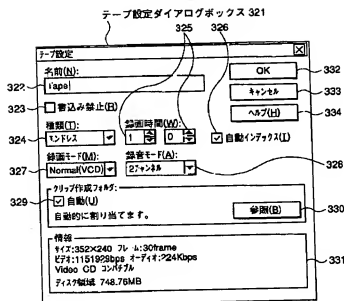 テープ設定ダイアログボックス 321
325 326
テープ設定
名前(N):
OK 332
322 Tape1
キャンセル 333
323 書込み禁止(R)
ヘルプ(H) 334
種類(T): 録画時間(W):
324 エンドレス 1 0 自動インデックス(I)
録画モード(M): 録音モード(A):
327 Normal(VCD) 2チャンネル 328
クリップ作成フォルダ:
329 自動(U)
自動的に割り当てます。 参照(B) 330
情報
サイズ:352×240 フレーム:30frame
ビデオ:1151929bps オーディオ:224Kbps
Video CD コンパチブル
ディスク領域 748.76MB
331